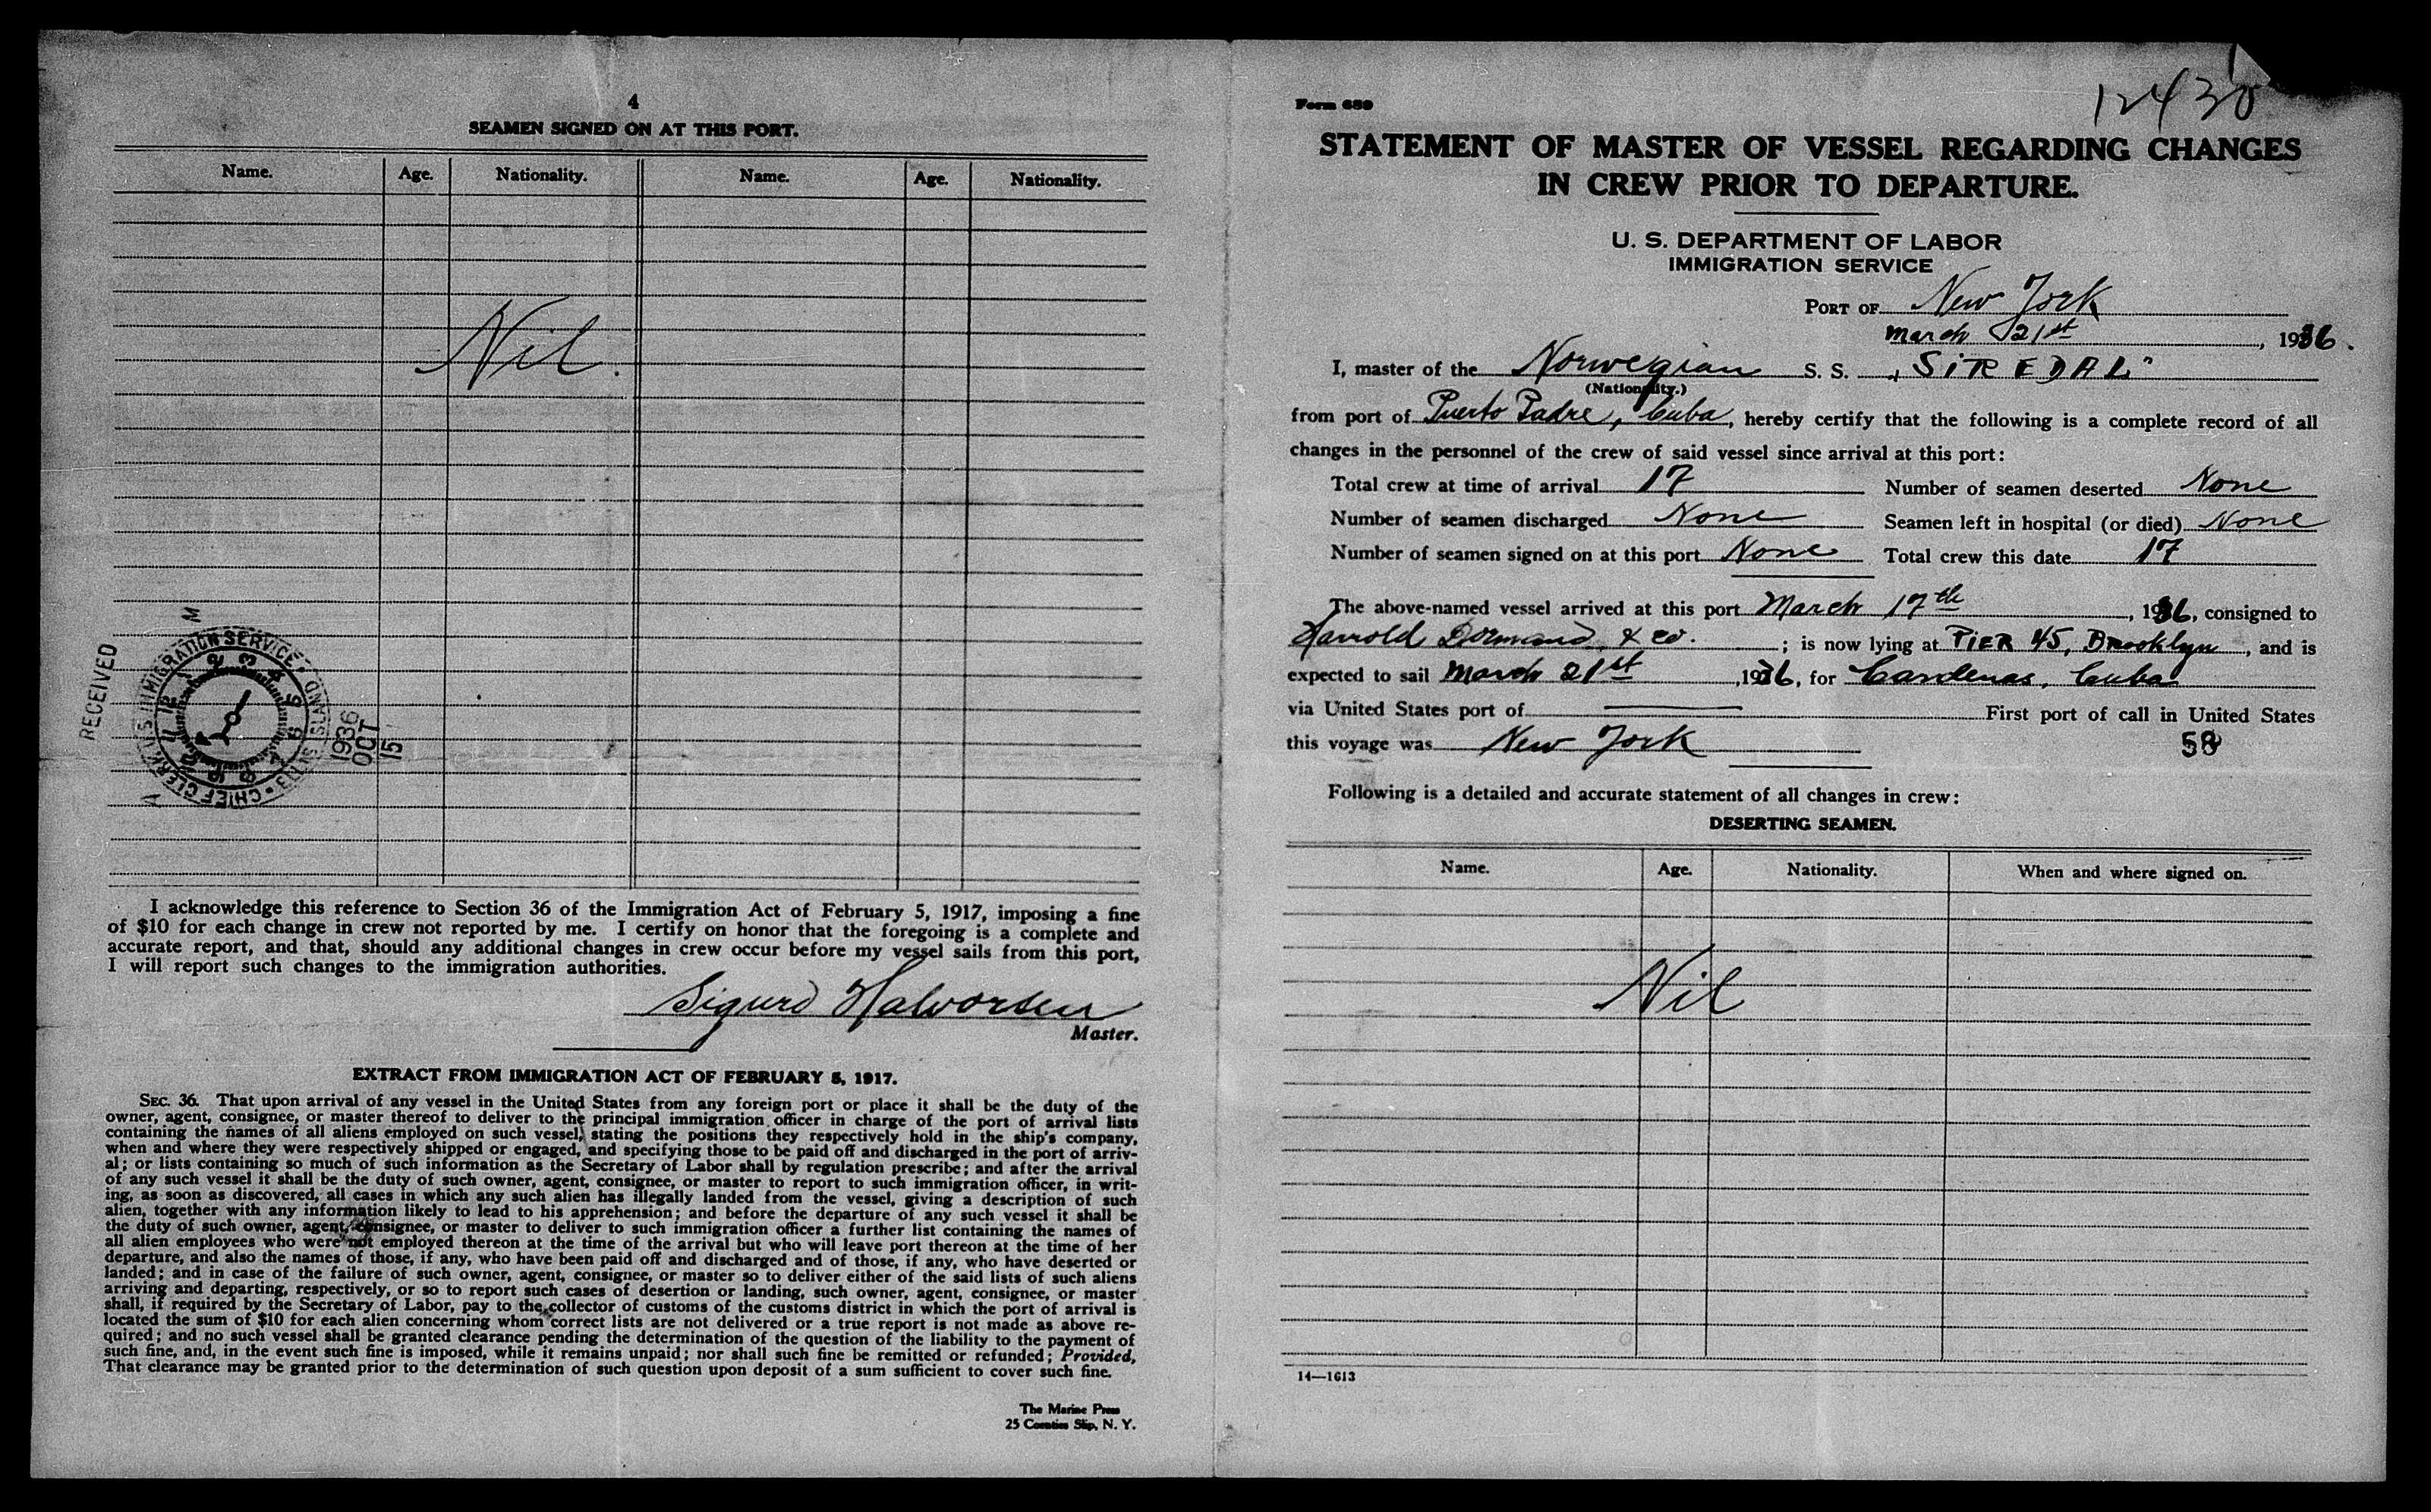 4
SEAMEN SIGNED ON AT THIS PORT.
Name. Age. Nationality. Name. Age. Nationality.
Nil.
RECEIVED
A M
U.S. IMMIGRATION SERVICE
CHIEF CLERK ELLIS ISLAND
1936
OCT
15
I acknowledge this reference to Section 36 of the Immigration Act of February 5, 1917, imposing a fine
of $10 for each change in crew not reported by me. I certify on honor that the foregoing is a complete and
accurate report, and that, should any additional changes in crew occur before my vessel sails from this port,
I will report such changes to the immigration authorities.
Sigurd Halvorsen
Master.
EXTRACT FROM IMMIGRATION ACT OF FEBRUARY 5, 1917.
SEC. 36. That upon arrival of any vessel in the United States from any foreign port or place it shall be the duty of the
owner, agent, consignee, or master thereof to deliver to the principal immigration officer in charge of the port of arrival lists
containing the names of all aliens employed on such vessel, stating the positions they respectively hold in the ship's company,
when and where they were respectively shipped or engaged, and specifying those to be paid off and discharged in the port of arriv-
al; or lists containing so much of such information as the Secretary of Labor shall by regulation prescribe; and after the arrival
of any such vessel it shall be the duty of such owner, agent, consignee, or master to report to such immigration officer, in writ-
ing, as soon as discovered, all cases in which any such alien has illegally landed from the vessel, giving a description of such
alien, together with any information likely to lead to his apprehension; and before the departure of any such vessel it shall be
the duty of such owner, agent, consignee, or master to deliver to such immigration officer a further list containing the names of
all alien employees who were not employed thereon at the time of the arrival but who will leave port thereon at the time of her
departure, and also the names of those, if any, who have been paid off and discharged and of those, if any, who have deserted or
landed; and in case of the failure of such owner, agent, consignee, or master so to deliver either of the said lists of such aliens
arriving and departing, respectively, or so to report such cases of desertion or landing, such owner, agent, consignee, or master
shall, if required by the Secretary of Labor, pay to the collector of customs of the customs district in which the port of arrival is
located the sum of $10 for each alien concerning whom correct lists are not delivered or a true report is not made as above re-
quired; and no such vessel shall be granted clearance pending the determination of the question of the liability to the payment of
such fine, and, in the event such fine is imposed, while it remains unpaid; nor shall such fine be remitted or refunded; Provided,
That clearance may be granted prior to the determination of such question upon deposit of a sum sufficient to cover such fine.
The Marine Press
25 Coenties Slip, N. Y.
Form 689
12430
STATEMENT OF MASTER OF VESSEL REGARDING CHANGES
IN CREW PRIOR TO DEPARTURE.
U. S. DEPARTMENT OF LABOR
IMMIGRATION SERVICE
PORT OF New York
March 21st, 1936.
I, master of the Norwegian S. S. "SIREDAL"
(Nationality.)
from port of Puerto Padre, Cuba, hereby certify that the following is a complete record of all
changes in the personnel of the crew of said vessel since arrival at this port:
Total crew at time of arrival 17 Number of seamen deserted None
Number of seamen discharged None Seamen left in hospital (or died) None
Number of seamen signed on at this port None Total crew this date 17
The above-named vessel arrived at this port March 17th, 1936, consigned to
& Co.; is now lying at PIER 45, Brooklyn, and is
expected to sail March 21st, 1936, for Cardenas, Cuba
via United States port of — First port of call in United States
this voyage was New York
58
Following is a detailed and accurate statement of all changes in crew:
DESERTING SEAMEN.
Name. Age. Nationality. When and where signed on.
Nil
14—1613